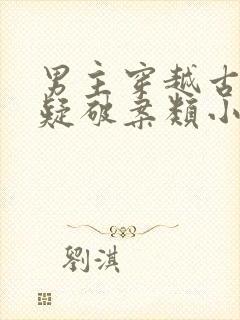 男主穿越古
疑破案類小
劉淇